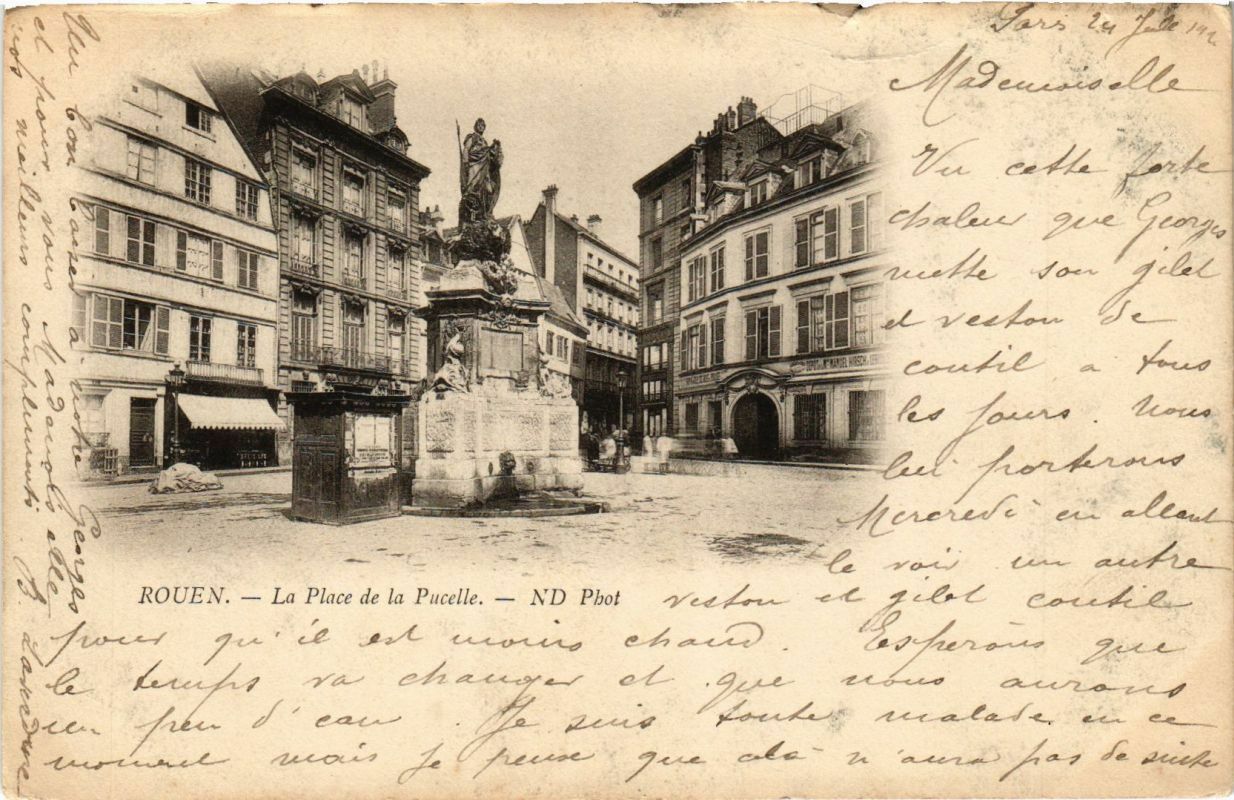 Paris 24 Juil
Mademoiselle
Vu cette forte
chaleur que Georges
mette son gilet
et veston de
coutil a tous
les jours. Nous
lui porterons
Mercredi en allant
le voir un autre
veston et gilet coutil
pour qu'il est moins chaud. Esperons que
le temps va changer et que nous aurons
un peu d'eau. Je suis toute malade en ce
moment mais je pense que cela n'aura pas de suite
Un bon baiser à notre Georges
et pour vous Mademoiselle
nos meilleurs compliments.
ROUEN. — La Place de la Pucelle. — ND Phot